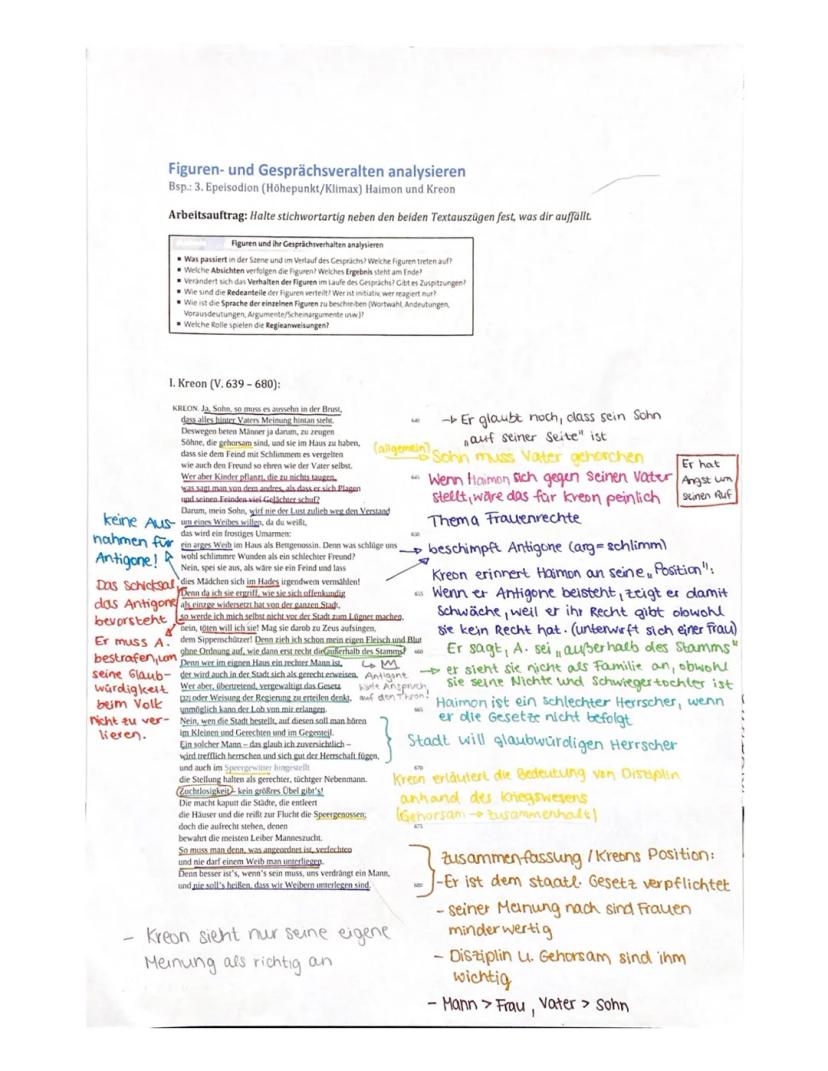 Figuren- und Gesprächsveralten analysieren
Bsp.: 3. Epeisodion (Höhepunkt/Klimax) Haimon und Kreon
Arbeitsauftrag: Halte stichwortartig neben den beiden Textauszügen fest, was dir auffällt.
Figuren und ihr Gesprächsverhalten analysieren
▪ Was passiert in der Szene und im Verlauf des Gesprächs? Welche Figuren treten auf?
▪ Welche Absichten verfolgen die Figuren? Welches Ergebnis steht am Ende?
▪ Verändert sich das Verhalten der Figuren im Laufe des Gesprächs? Gibt es Zuspitzungen?
▪ Wie sind die Redeanteile der Figuren verteilt? Wer ist initiativ, wer reagiert nur?
▪ Wie ist die Sprache der einzelnen Figuren zu beschreiben (Wortwahl, Andeutungen,
Vorausdeutungen, Argumente/Scheinargumente usw.)?
▪ Welche Rolle spielen die Regieanweisungen?
I. Kreon (V. 639 – 680):
KREON. Ja, Sohn, so muss es aussehn in der Brust,
dass alles hinter Vaters Meinung hintan steht.
Deswegen beten Männer ja darum, zu zeugen
Söhne, die gehorsam sind, und sie im Haus zu haben,
dass sie dem Feind mit Schlimmem es vergelten
wie auch den Freund so ehren wie der Vater selbst.
Wer aber Kinder pflanzt, die zu nichts taugen,
was sagt man von dem andres, als dass er sich Plagen
und seinen Feinden viel Gelächter schuf?
Darum, mein Sohn, wirf nie der Lust zulieb weg den Verstand
um eines Weibes willen, da du weißt,
das wird ein frostiges Umarmen:
ein arges Weib im Haus als Bettgenossin. Denn was schlüge uns
wohl schlimmre Wunden als ein schlechter Freund?
Nein, spei sie aus, als wäre sie ein Feind und lass
dies Mädchen sich im Hades irgendwem vermählen!
Denn da ich sie ergriff, wie sie sich offenkundig
als einzge widersetzt hat von der ganzen Stadt,
so werde ich mich selbst nicht vor der Stadt zum Lügner machen,
nein, töten will ich sie! Mag sie darob zu Zeus aufsingen,
dem Sippenschützer! Denn zieh ich schon mein eigen Fleisch und Blut
ohne Ordnung auf, wie dann erst recht die außerhalb des Stamms!
Denn wer im eignen Haus ein rechter Mann ist,
der wird auch in der Stadt sich als gerecht erweisen.
Wer aber, übertretend, vergewaltigt das Gesetz
oder Weisung der Regierung zu erteilen denkt,
unmöglich kann der Lob von mir erlangen.
Nein, wen die Stadt bestellt, auf diesen soll man hören
im Kleinen und Gerechten und im Gegenteil.
Ein solcher Mann – das glaub ich zuversichtlich –
wird trefflich herrschen und sich gut der Herrschaft fügen,
und auch im Speergewitter hingestellt
die Stellung halten als gerechter, tüchtger Nebenmann.
Zuchtlosigkeit – kein größres Übel gibt's!
Die macht kaputt die Städte, die entleert
die Häuser und die reißt zur Flucht die Speergenossen;
doch die aufrecht stehen, denen
bewahrt die meisten Leiber Manneszucht.
So muss man denn, was angeordnet ist, verfechten
und nie darf einem Weib man unterliegen.
Denn besser ist's, wenn's sein muss, uns verdrängt ein Mann,
und nie soll's heißen, dass wir Weibern unterlegen sind.
640
645
650
655
660
665
670
675
680
→ Er glaubt noch, dass sein Sohn
„auf seiner Seite" ist
(allgemein) Sohn muss Vater gehorchen
Wenn Haimon sich gegen seinen Vater
stellt, wäre das für Kreon peinlich
Er hat
Angst um
seinen Ruf
Thema Frauenrechte
beschimpft Antigone (arg = schlimm)
Kreon erinnert Haimon an seine „Position":
Wenn er Antigone beisteht, zeigt er damit
Schwäche, weil er ihr Recht gibt obwohl
sie kein Recht hat. (unterwirft sich einer Frau)
Er sagt, A. sei „außerhalb des Stamms"
→ er sieht sie nicht als Familie an, obwohl
sie seine Nichte und Schwiegertochter ist
Antigone
hätte Anspruch
auf den Thron!
Haimon ist ein schlechter Herrscher, wenn
er die Gesetze nicht befolgt
Stadt will glaubwürdigen Herrscher
Kreon erläutert die Bedeutung von Disziplin
anhand des Kriegswesens
(Gehorsam → Zusammenhalt)
Zusammenfassung / Kreons Position:
- Er ist dem staatl. Gesetz verpflichtet
- seiner Meinung nach sind Frauen
minderwertig
- Disziplin u. Gehorsam sind ihm
wichtig
- Mann > Frau, Vater > Sohn
keine Aus-
nahmen für
Antigone!
Das Schicksal,
das Antigone
bevorsteht
Er muss A.
bestrafen, um
seine Glaub-
würdigkeit
beim Volk
nicht zu ver-
lieren.
- Kreon sieht nur seine eigene
Meinung als richtig an